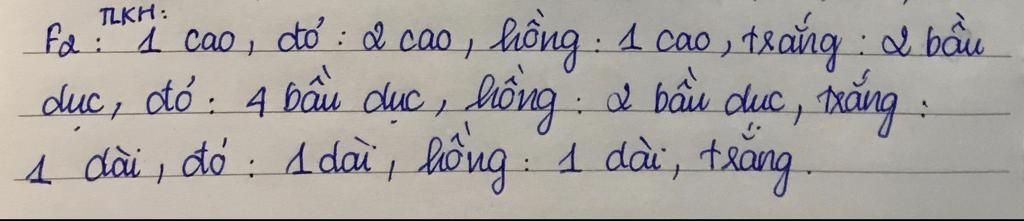 TLKH:
F2 : 1 cao, đỏ : 2 cao, hồng : 1 cao, trắng : 2 bầu
dục, đỏ : 4 bầu dục, hồng : 2 bầu dục, trắng :
1 dài, đỏ : 1 dài, hồng : 1 dài, trắng.